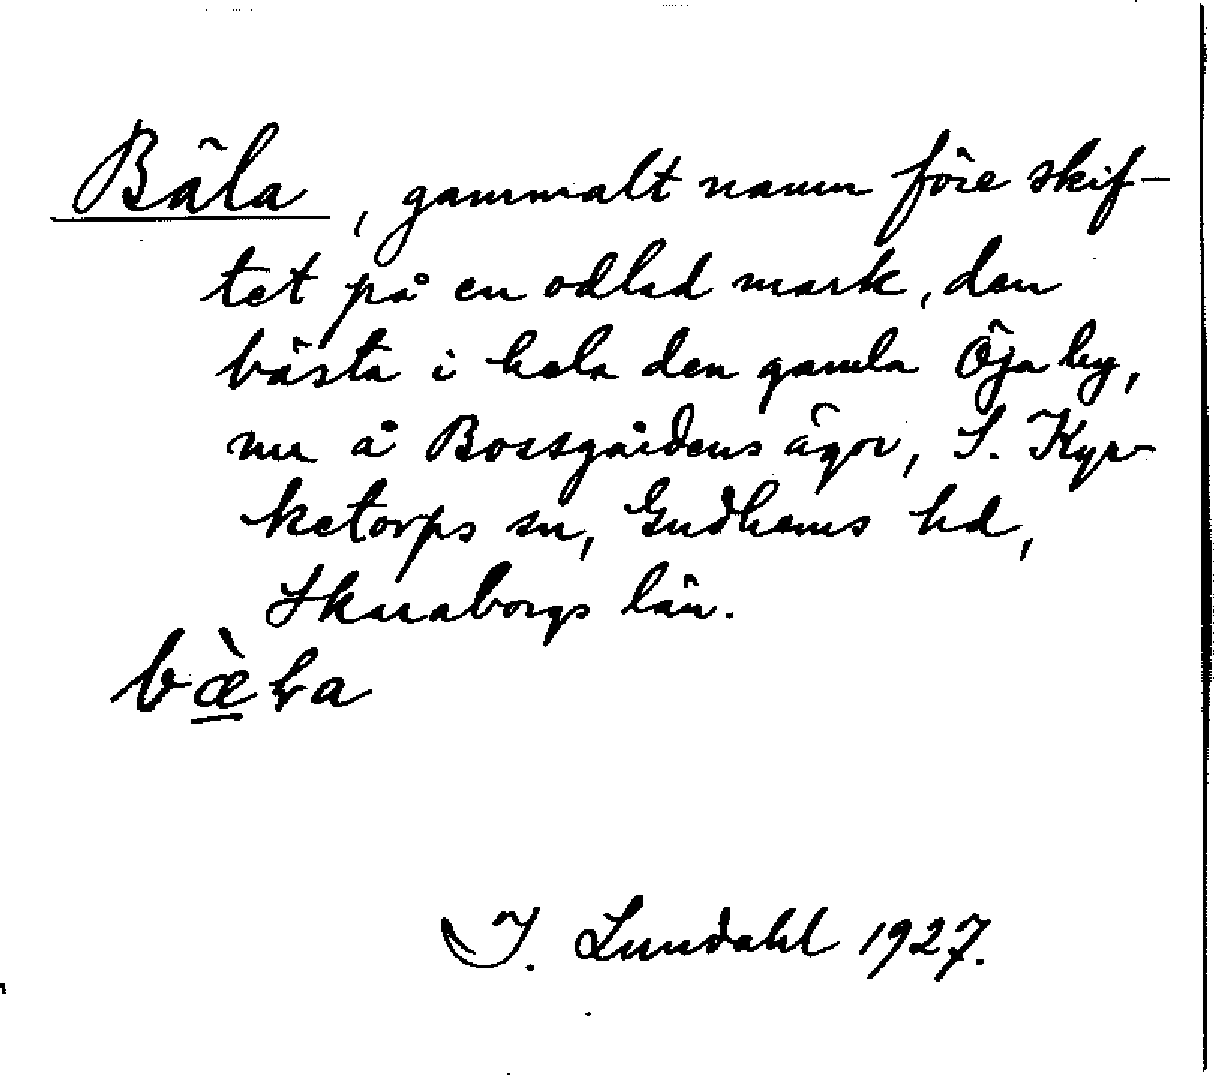 Bäla, gammalt namn före skif-
tet på en odlad mark, den
bästa i hela den gamla Öja by,
nu å Bossgårdens ägor, S. Kyr-
ketorps sn, Gudhems hd,
Skaraborgs län.
bæ̀ɽa
I. Lundahl 1927.